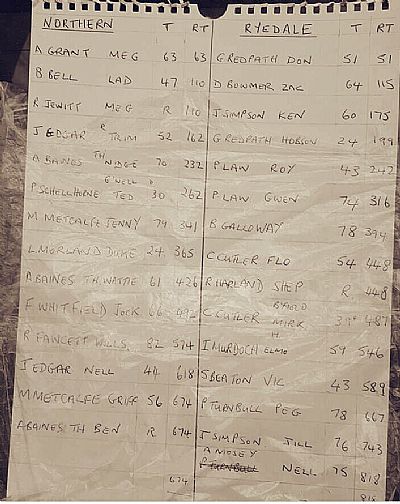 NORTHERN T RT RYEDALE T RT
A GRANT MEG 63 63 G REDPATH DON 51 51
B BELL LAD 47 110 D BOWMER ZAC 64 115
R JEWITT MEG R 110 J SIMPSON KEN 60 175
J EDGAR R TRIM 52 162 G REDPATH HOBSON 24 199
A BAINES TH NIDGE 70 232 P LAW ROY 43 242
P SCHELLHORNE G'NELL D TED 30 262 P LAW GWEN 74 316
M METCALFE JENNY 79 341 B GALLOWAY 78 394
L MORLAND DUKE 24 365 C CUTLER FLO 54 448
A BAINES TH WATTIE 61 426 R HARLAND SHEP R 448
F WHITFIELD JOCK 66 492 C CUTLER MIRK 39 487
R FAWCETT WILLS. 82 574 I MURDOCH ELMO 59 546
J EDGAR NELL 44 618 S BEATON VIC 43 589
M METCALFE GRIFF 56 674 P TURNBULL PEG 78 667
A BAINES TH BEN R 674 J SIMPSON JILL 76 743
A MOSEY
P TURNBULL NELL 75 818
674 818